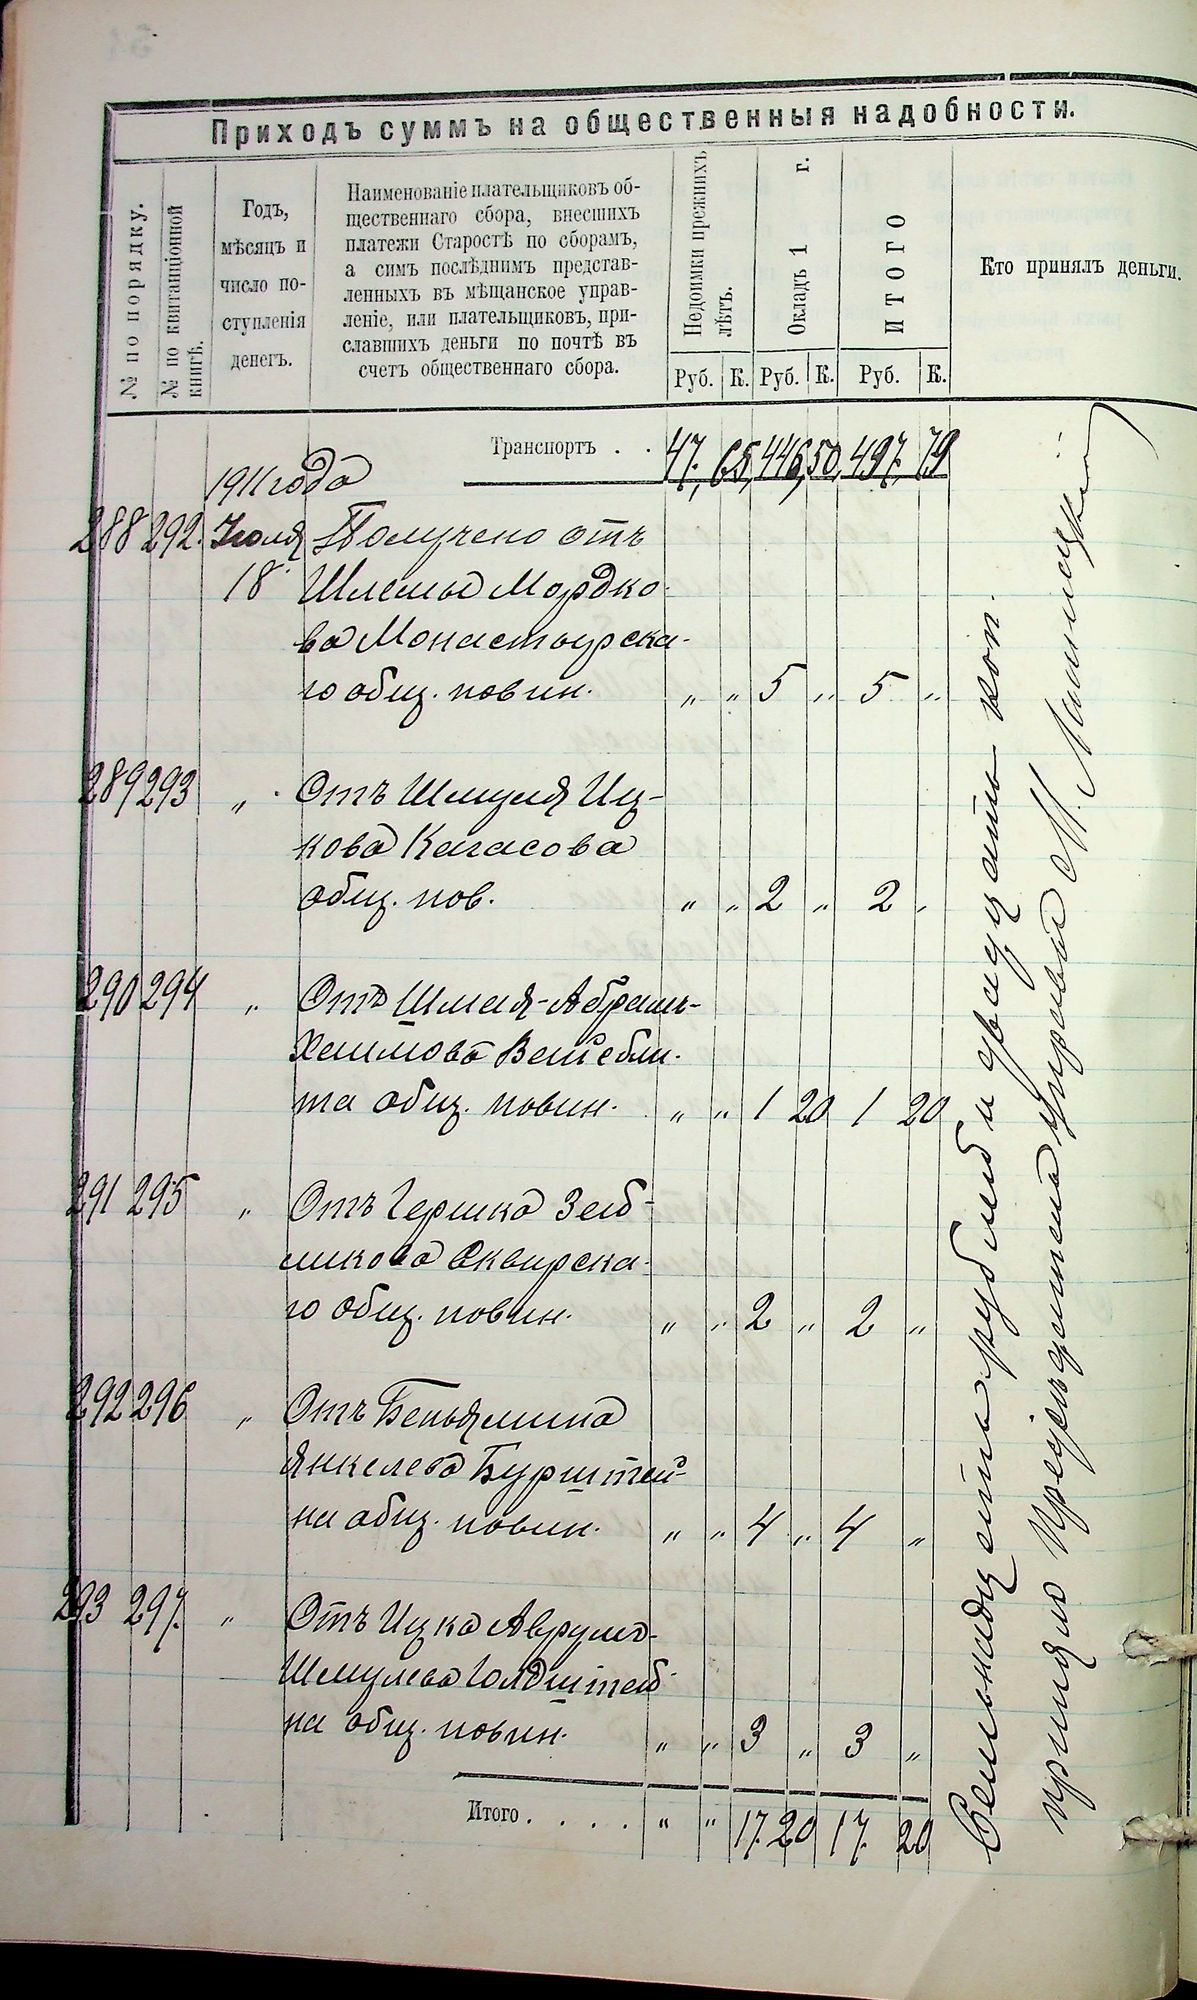 Приходъ суммъ на общественныя надобности.
№ по порядку.
№ по квитанціонной
книгѣ.
Годъ,
мѣсяцъ и
число по-
ступленія
денегъ.
Наименованіе плательщиковъ об-
щественнаго сбора, внесшихъ
платежи Старостѣ по сборамъ,
а симъ послѣднимъ представ-
ленныхъ въ мѣщанское управ-
леніе, или плательщиковъ, при-
славшихъ деньги по почтѣ въ
счетъ общественнаго сбора.
Недоимки прежнихъ
лѣтъ.
Окладъ 1 г.
ИТОГО
Кто принялъ деньги.
Руб. К. Руб. К. Руб. К.
Транспортъ . . 47. 65, 446, 50, 497. 79
1911 года
288 292. Іюля Получено отъ
18 Шлемы Мордко-
ва Монастырска-
го общ. повин. „ „ 5 „ 5 „
289 293 „ Отъ Шмуля Иц-
кова Кагасова
общ. пов. „ „ 2 „ 2 „
290 294 „ Отъ Шмая-Абрамъ-
Хаимова Вайсбли-
та общ. повин. „ „ 1 20 1 20
291 295 „ Отъ Гершка Зей-
ликова Сквирска-
го общ. повин. „ „ 2 „ 2 „
292 296 „ Отъ Беньямина
Янкелева Бурштей-
на общ. повин. „ „ 4 „ 4 „
293 297. „ Отъ Ицка Аврумъ-
Шмулева Голдштей-
на общ. повин. „ „ 3 „ 3 „
Итого . . . . „ „ 17. 20 17. 20
Семьнадцать рублей и двадцать коп.
принялъ Предсѣдатель управы М.